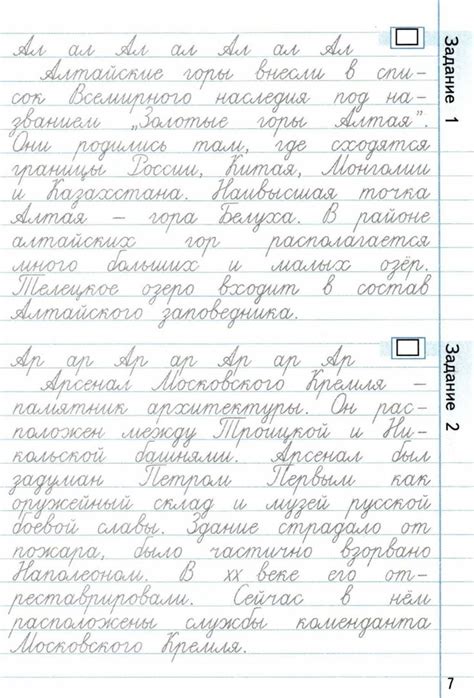 Задание 1
Ал ал Ал ал Ал ал Ал
Алтайские горы внесли в спи-
сок Всемирного наследия под на-
званием „Золотые горы Алтая".
Они родились там, где сходятся
границы России, Китая, Монголии
и Казахстана. Наивысшая точка
Алтая – гора Белуха. В районе
алтайских гор располагается
много больших и малых озёр.
Телецкое озеро входит в состав
Алтайского заповедника.
Задание 2
Ар ар Ар ар Ар ар Ар
Арсенал Московского Кремля –
памятник архитектуры. Он рас-
положен между Троицкой и Ни-
кольской башнями. Арсенал был
задуман Петром Первым как
оружейный склад и музей русской
боевой славы. Здание страдало от
пожара, было частично взорвано
Наполеоном. В XX веке его от-
реставрировали. Сейчас в нём
расположены службы коменданта
Московского Кремля.
7